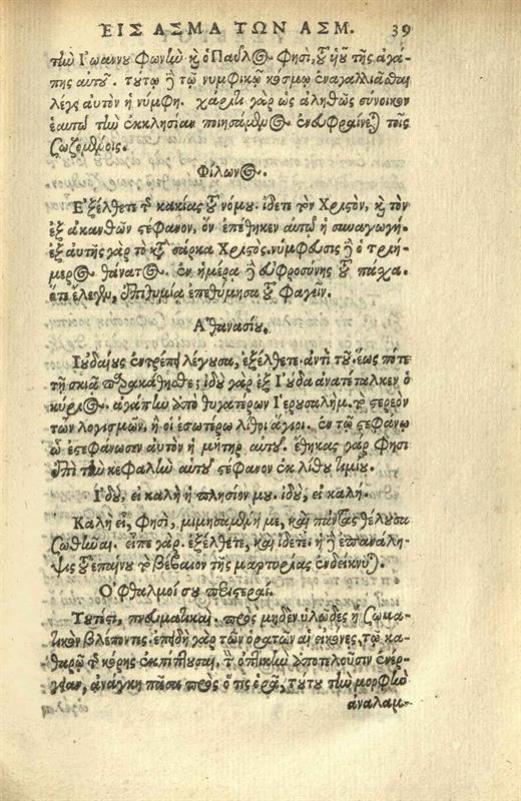 ΕΙΣ ΑΣΜΑ ΤΩΝ ΑΣΜ. 39
τὴν Ἰωάννου φωνὴν καὶ ὁ Παῦλος φησὶ, τοῦ υἱοῦ τῆς ἀγά-
πης αὐτοῦ. τούτῳ δὲ τῷ νυμφικῷ κόσμῳ ἐναγαλλιᾶσθαι
λέγει αὐτὸν ἡ νύμφη. χάριτι γὰρ ὡς ἀληθῶς σύνοικον
ἑαυτῷ τὴν ἐκκλησίαν ποιησάμενος ἐνευφραίνεται τοῖς
σωζομένοις.
Φίλωνος.
Ἐξέλθετε τῆς κακίας τοῦ νόμου. ἴδετε τὸν Χριστὸν, καὶ τὸν
ἐξ ἀκανθῶν στέφανον, ὃν ἐπέθηκεν αὐτῷ ἡ συναγωγή.
ἐξ αὐτῆς γὰρ τὸ κατὰ σάρκα Χριστός. νύμφευσις δὲ ὁ τριή-
μερος θάνατος. ἐν ἡμέρᾳ δὲ εὐφροσύνης τοῦ πάσχα.
ὅτι ἔλεγεν, ἐπιθυμίᾳ ἐπεθύμησα τοῦ φαγεῖν.
Ἀθανασίου.
Ἰουδαίους ἐντρέπει λέγουσα, ἐξέλθετε. ἀντὶ τοῦ. ἕως πότε
τῇ σκιᾷ παρακάθησθε; ἰδοὺ γὰρ ἐξ Ἰούδα ἀνατέταλκεν ὁ
κύριος. ἀγάπην ἀπὸ θυγατέρων Ἱερουσαλήμ. τὸ στερεὸν
τῶν λογισμῶν, ἢ οἱ ἐσωτέρω λίθοι ἅγιοι. ἐν τῷ στεφάνῳ
ᾧ ἐστεφάνωσεν αὐτὸν ἡ μήτηρ αὐτοῦ. ἔθηκας γάρ φησι
ἐπὶ τὴν κεφαλὴν αὐτοῦ στέφανον ἐκ λίθου τιμίου.
Ἰδοὺ, εἶ καλὴ ἡ πλησίον μου. ἰδοὺ, εἶ καλή.
Καλὴ εἶ, φησὶ, μιμησαμένη με, καὶ πάντας θέλουσα
σωθῆναι. εἶπε γὰρ. ἐξέλθετε, καὶ ἴδετε. ἡ δὲ ἐπανάλη-
ψις τοῦ ἐπαίνου τὸ βέβαιον τῆς μαρτυρίας ἐνδείκνυται.
Ὀφθαλμοί σου περιστεραί.
Τουτέστι, πνευματικαί. πρὸς μηδὲν ὑλῶδες ἢ σωμα-
τικὸν βλέποντες. ἐπειδὴ γὰρ τῶν ὁρατῶν αἱ εἰκόνες, τῷ κα-
θαρῷ τῆς κόρης ἐκπίπτουσαι, τὴν ὀπτικὴν ἀποτελοῦσιν ἐνέρ-
γειαν, ἀνάγκη πᾶσα πρὸς ὅ τις ὁρᾷ, τούτου τὴν μορφὴν
ἀναλαμ-